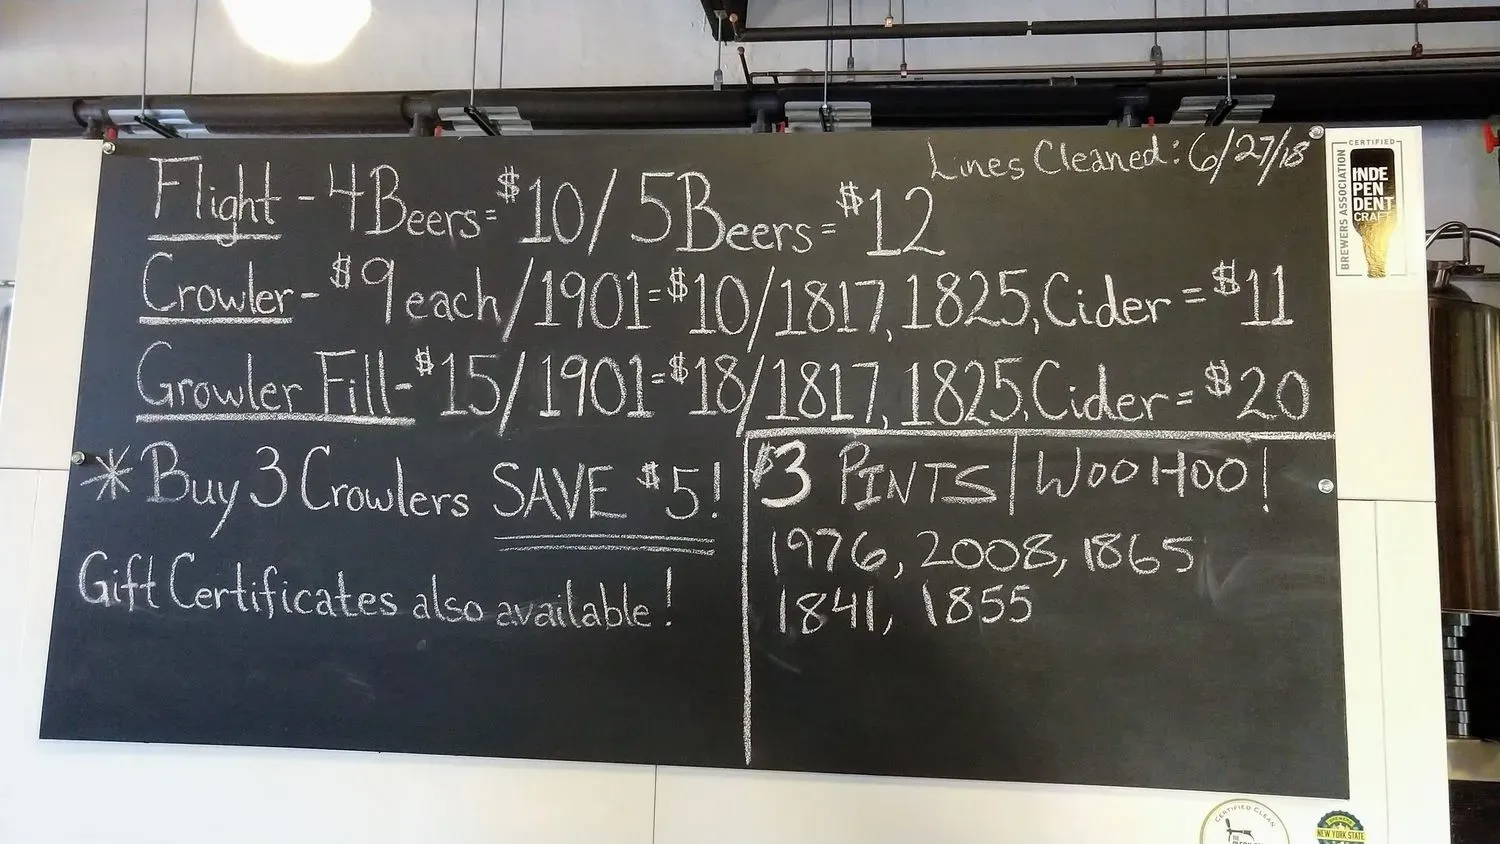 Lines Cleaned: 6/27/18
Flight - 4 Beers = $10 / 5 Beers = $12
Crowler - $9 each / 1901 = $10 / 1817, 1825, Cider = $11
Growler Fill - $15 / 1901 = $18 / 1817, 1825, Cider = $20
* Buy 3 Crowlers SAVE $5!
Gift Certificates also available!
$3 PINTS | WOO HOO!
1976, 2008, 1865
1841, 1855
BREWERS ASSOCIATION
CERTIFIED
INDE
PEN
DENT
CRAFT
CERTIFIED CLEAN
THE
NEW YORK STATE